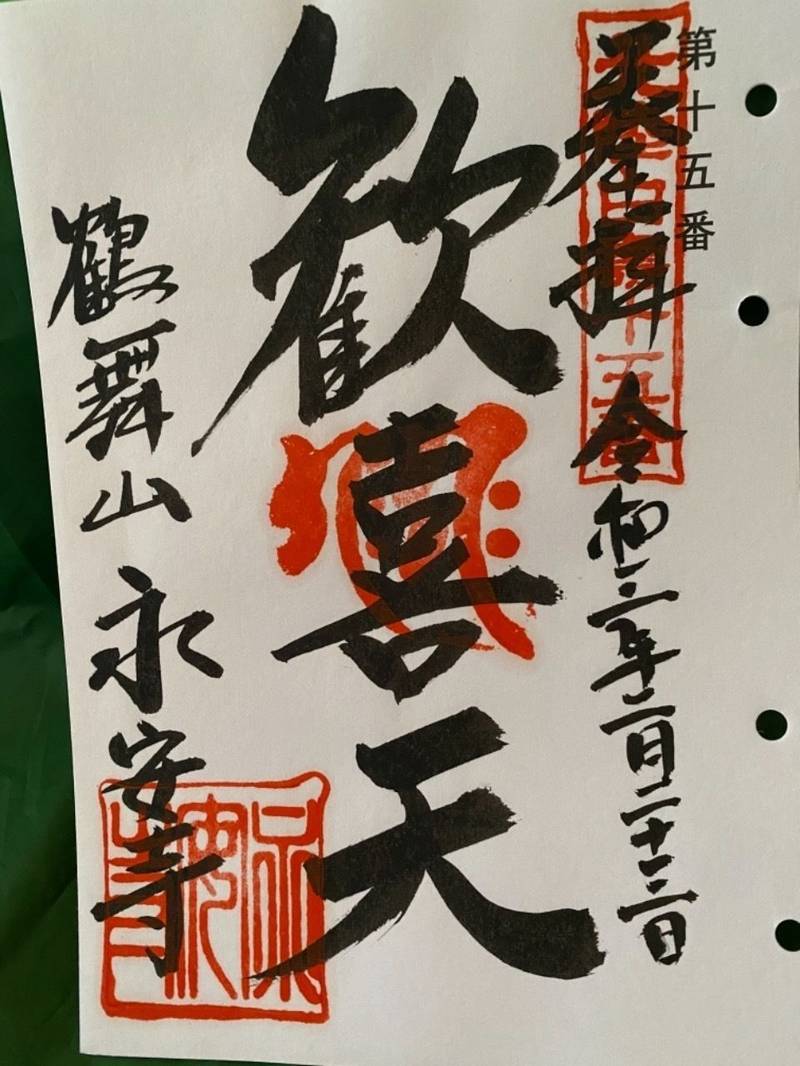 第十五番
奉拝 令和三年二月二十三日
歓喜天
鶴舞山 永安寺